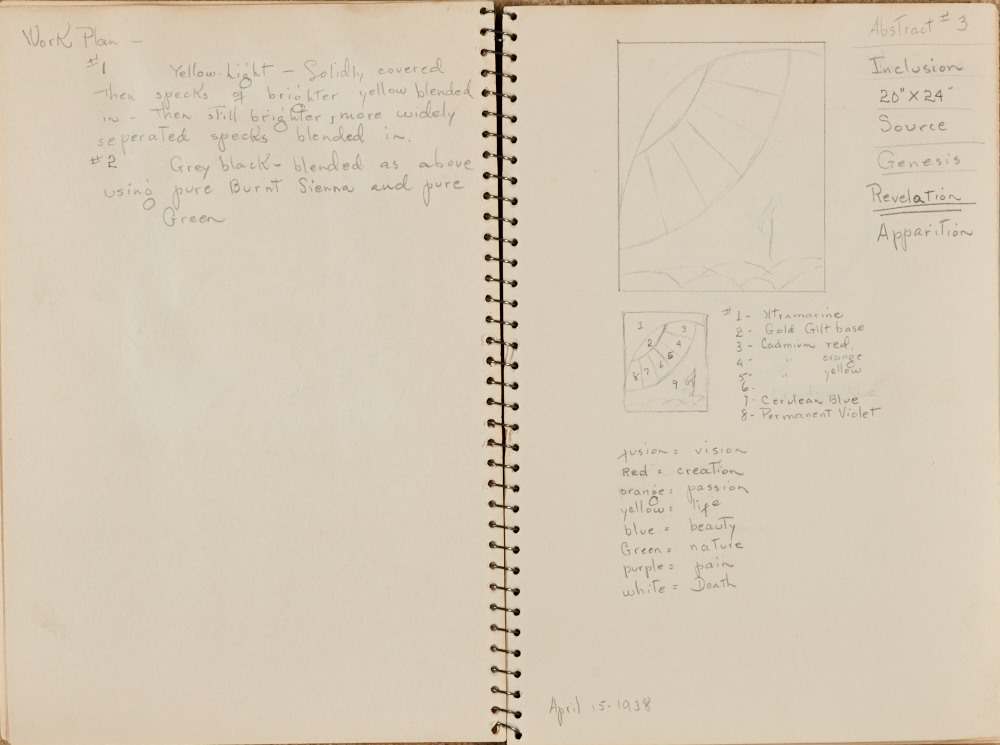 Work Plan —
#1 Yellow Light — Solidly covered
Then specks of brighter yellow blended
in - then still brighter, more widely
seperated specks blended in.
#2 Grey black - blended as above
using pure Burnt Sienna and pure
Green
Abstract #3
Inclusion
20" X 24"
Source
Genesis
Revelation
Apparition
1 2 3 4 5 6 7 8 9
#1 - Ultramarine
2 - Gold Gilt base
3 - Cadmium red,
4 - " orange
5 - " yellow
6 -
7 - Cerulean Blue
8 - Permanent Violet
fusion = vision
Red = creation
orange = passion
yellow = life
blue = beauty
Green = nature
purple = pain
white = Death
April 15-1938